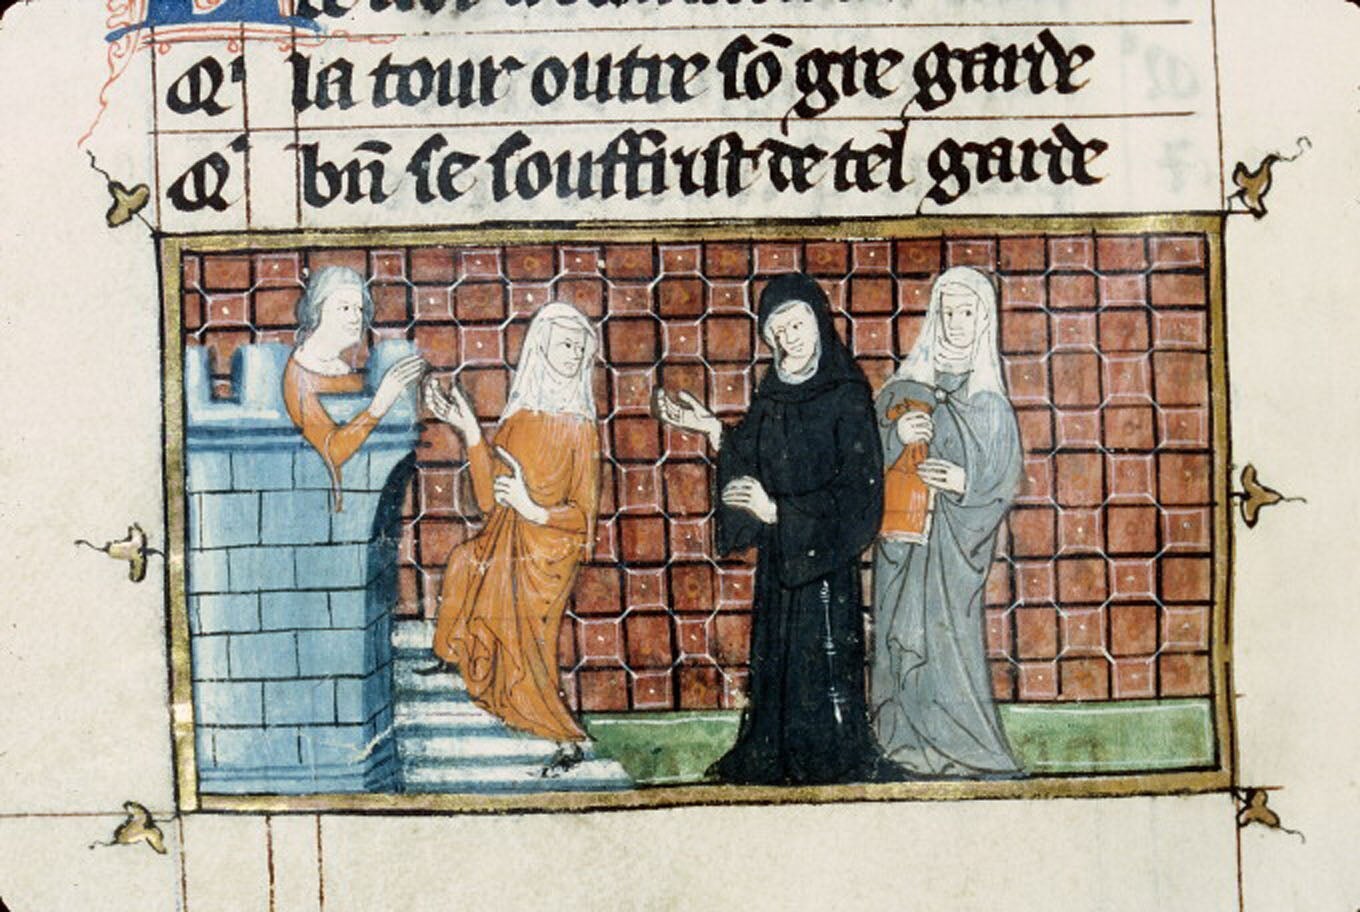 Qi la tour outre sõ gre garde
Qi bñ se souffrist de tel garde